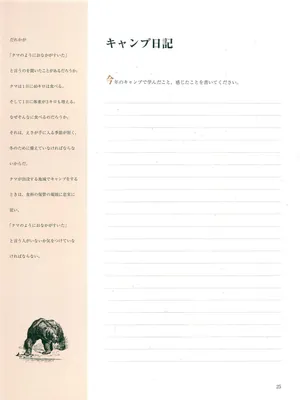 だれかが
「クマのようにおなかがすいた」
と言うのを聞いたことがあるだろうか。
クマは1日に60キロは食べる。
そして1日に体重が3キロも増える。
なぜそんなに食べるのだろうか。
それは、えさが手に入る季節が短く、
冬のために備えていなければならな
いからだ。
クマが出没する地域でキャンプをする
ときは、食料の保管の規則に忠実に
従い、
「クマのようにおなかがすいた」
と言う人がいないか気をつけていな
ければならない。
キャンプ日記
今年のキャンプで学んだこと、感じたことを書いてください。
25